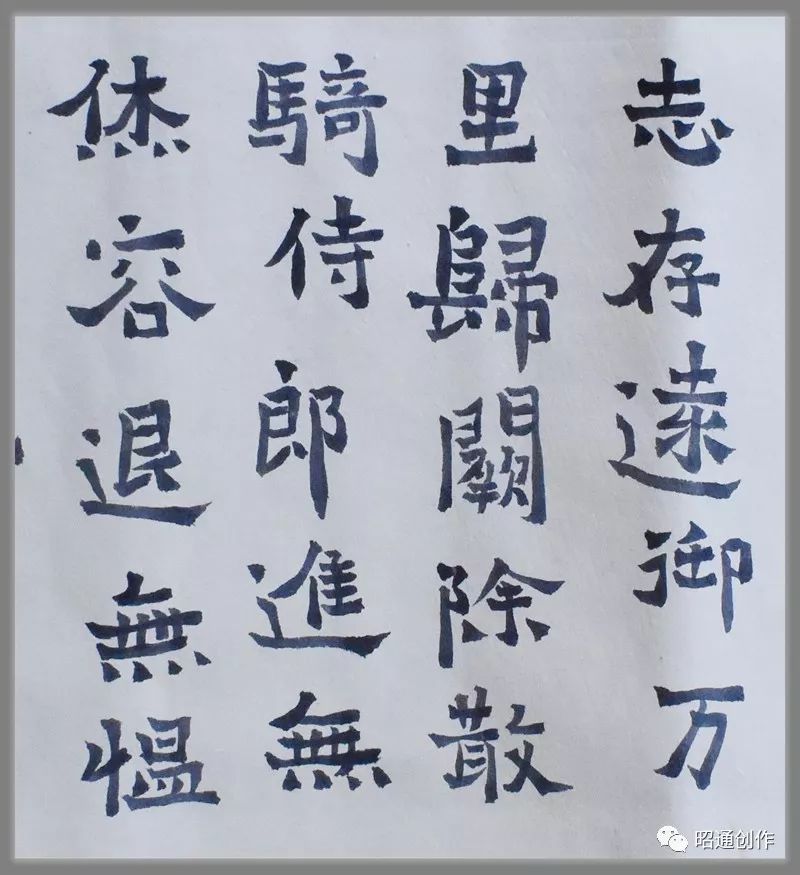 志存遠御万
里歸闕除散
騎侍郎進無
烋容退無愠
昭通创作